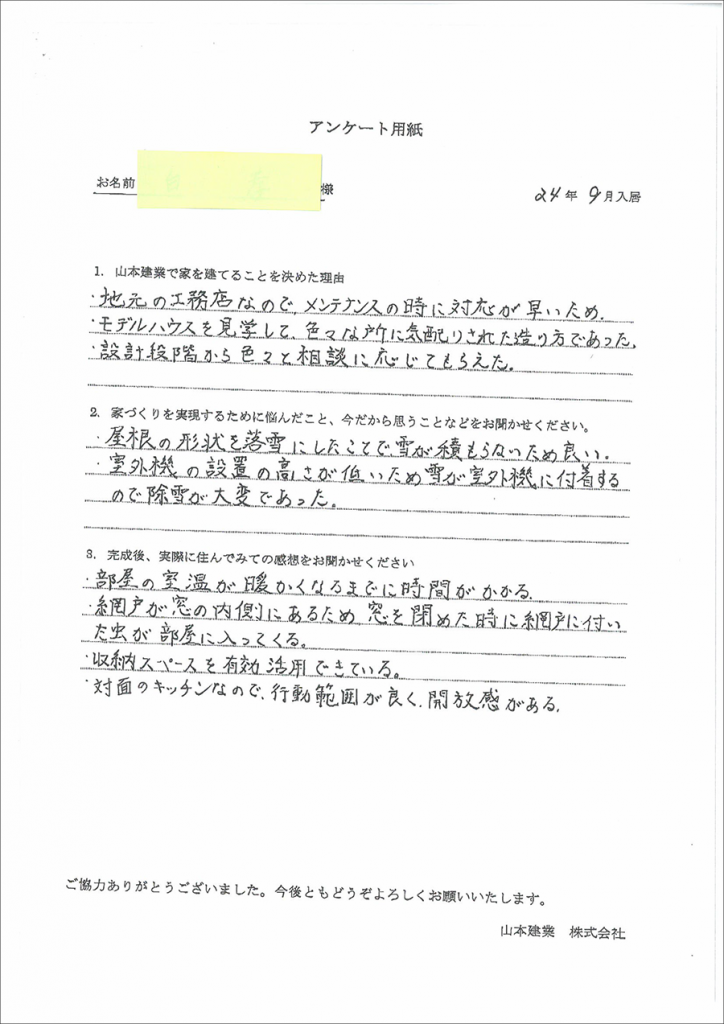 アンケート用紙
お名前 様
24年 9月入居
1. 山本建業で家を建てることを決めた理由
・地元の工務店なので メンテナンスの時に対応が早いため.
・モデルハウスを見学して、色々な所に気配りされた造り方であった.
・設計段階から色々と相談に応じてもらえた.
2. 家づくりを実現するために悩んだこと、今だから思うことなどをお聞かせください。
・屋根の形状を落雪にしたことで雪が積もらないため良い.
・室外機の設置の高さが低いため雪が室外機に付着する
ので除雪が大変であった。
3. 完成後、実際に住んでみての感想をお聞かせください
・部屋の室温が暖かくなるまでに時間がかかる.
・網戸が窓の内側にあるため 窓を閉めた時に網戸に付い
た虫が部屋に入ってくる。
・収納スペースを有効活用できている。
・対面のキッチンなので、行動範囲が良く、開放感がある.
ご協力ありがとうございました。今後ともどうぞよろしくお願いいたします。
山本建業 株式会社